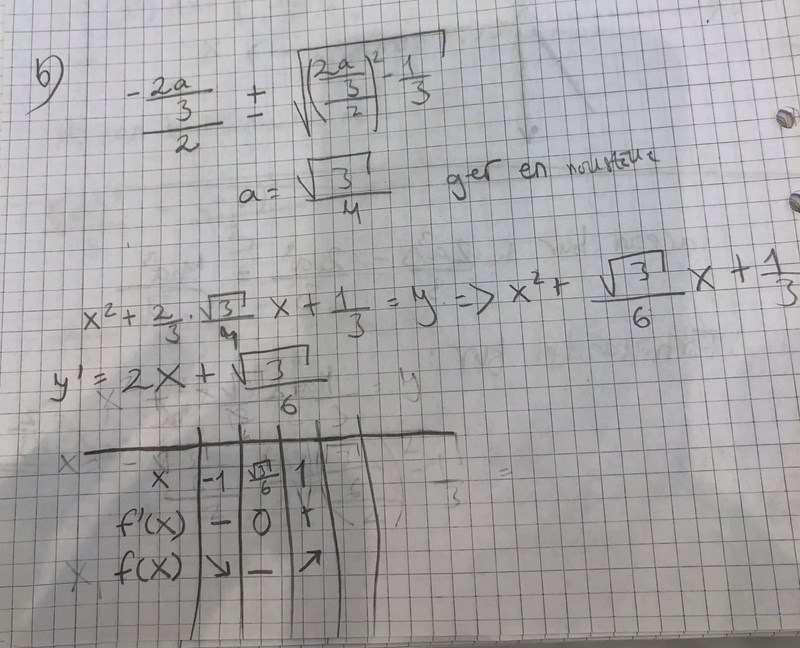 b)
-(2a/3)/2 ± √(((2a/3)/2)² - 1/3)
a = √3/4 ger en
x² + 2/3 · √3/4 x + 1/3 = y => x² + √3/6 x + 1/3
y' = 2x + √3/6
x | -1 | √3/6 | 1
f'(x) | - | 0 | +
f(x) | ↘ | - | ↗